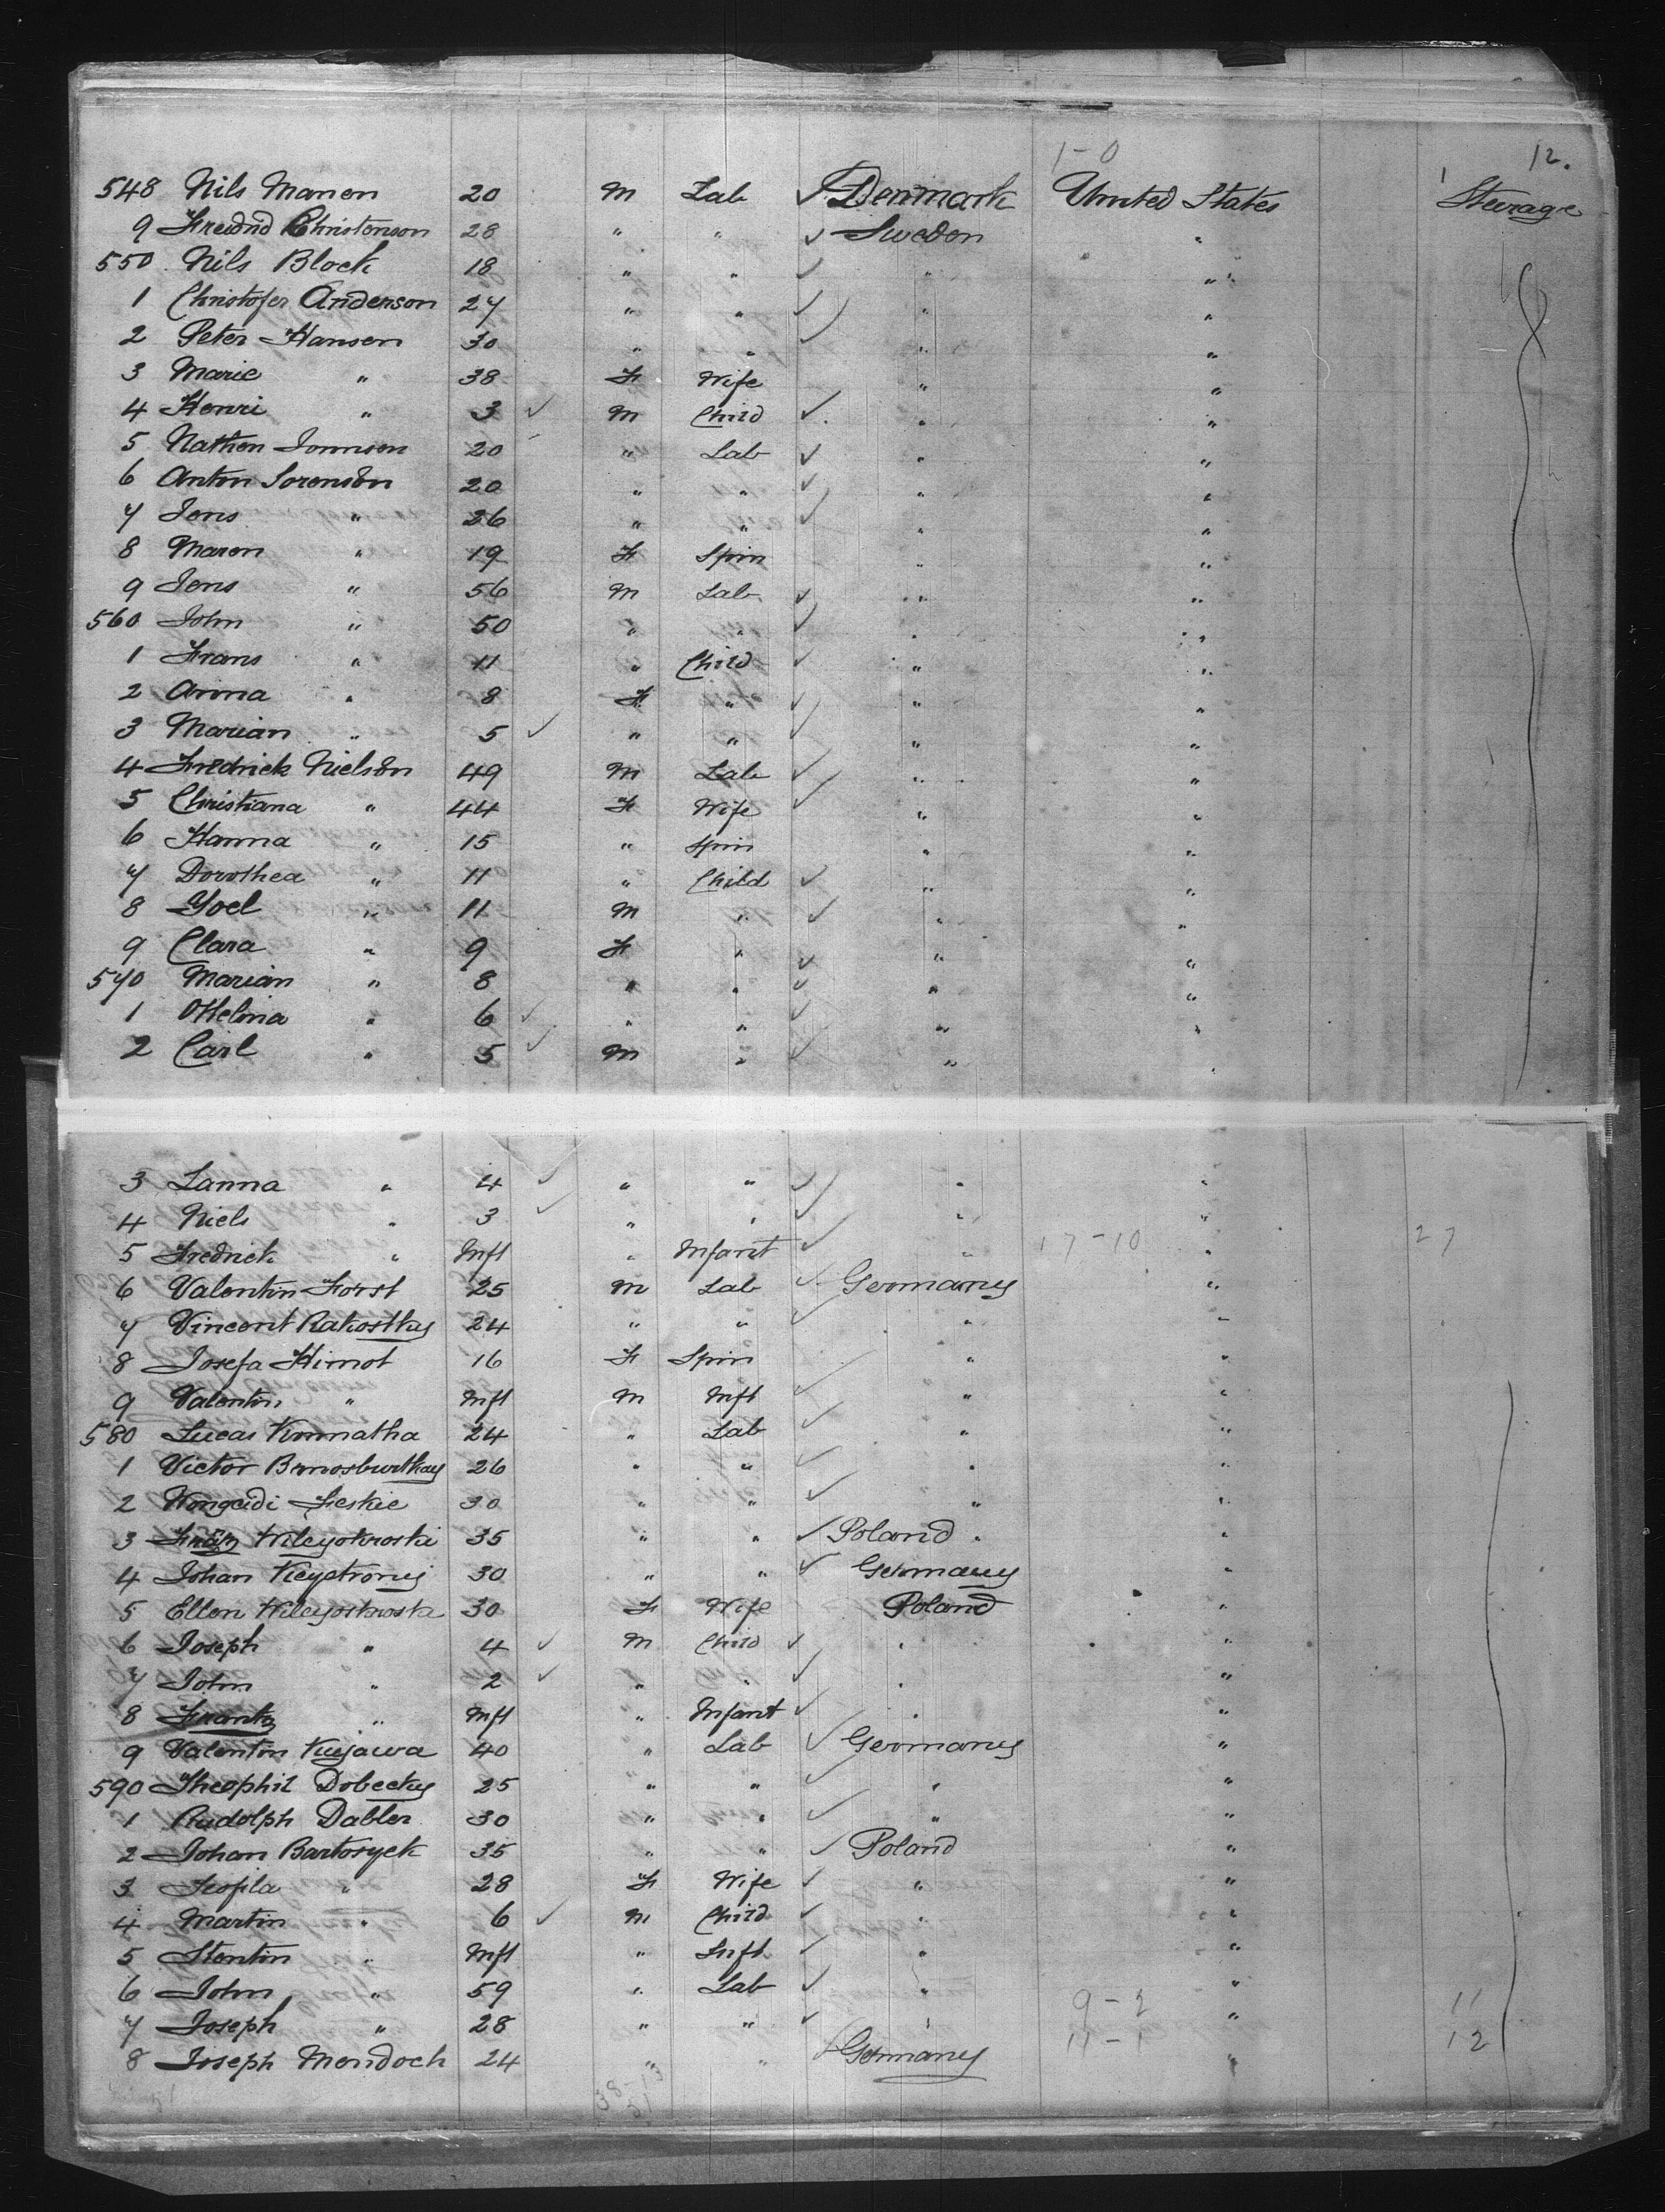 1-0
12.
548 Nils Manen 20 M Lab ✓ Denmark United States Steerage
9 Christenson 28 " " ✓ Sweden "
550 Nils Block 18 " " ✓ " "
1 Christofer Anderson 27 " " ✓ " "
2 Peter Hansen 30 " " ✓ " "
3 Marie " 38 F Wife " "
4 Henri " 3 ✓ M Child ✓ " "
5 Nathen 20 " Lab ✓ " "
6 Anton Sorenson 20 " " ✓ " "
7 Jens " 26 " " ✓ " "
8 Maren " 19 F Spin " "
9 Jens " 56 M Lab ✓ " "
560 John " 50 " " ✓ " "
1 Frans " 11 " Child ✓ " "
2 Anna " 8 F " ✓ " "
3 Marian " 5 ✓ " " ✓ " "
4 Fredrick Nielson 49 M Lab ✓ " "
5 Christiana " 44 F Wife ✓ " "
6 Hanna " 15 " Spin " "
7 Dorothea " 11 " Child ✓ " "
8 Yoel " 11 M " ✓ " "
9 Clara " 9 F " ✓ " "
570 Marian " 8 " " ✓ " "
1 " 6 ✓ " " ✓ " "
2 Carl " 5 ✓ M " ✓ " "
3 Lanna " 4 ✓ " " ✓ " "
4 Niels " 3 ✓ " " ✓ " "
5 Fredrick " Inft " Infant ✓ " 17-10 " 27
6 Valentin Forst 25 M Lab ✓ Germany "
7 Vincent Rakostky 24 " " ✓ " "
8 Josefa Himot 16 F Spin " "
9 Valentin " Inft M Inft ✓ " "
580 Lucas 24 " Lab ✓ " "
1 Victor 26 " " ✓ " "
2 Feskie 30 " " ✓ " "
3 35 " " ✓ Poland "
4 Johan 30 " " ✓ Germany "
5 Ellen 30 F Wife Poland "
6 Joseph " 4 ✓ M Child ✓ " "
7 John " 2 ✓ " " ✓ " "
8 Frantz " Inft " Infant ✓ " "
9 Valentin Kujawa 40 " Lab ✓ Germany "
590 Theophil Dobecky 25 " " ✓ " "
1 Rudolph Dabler 30 " " ✓ " "
2 Johan Bartosyek 35 " " ✓ Poland "
3 Teofila " 28 F Wife ✓ " "
4 Martin " 6 ✓ M Child ✓ " "
5 Stentin " Inft " Inft ✓ " "
6 John " 59 " Lab ✓ " "
7 Joseph " 28 " " ✓ " 9-2 " 11
8 Joseph Mendoch 24 " " ✓ Germany 11-1 " 12